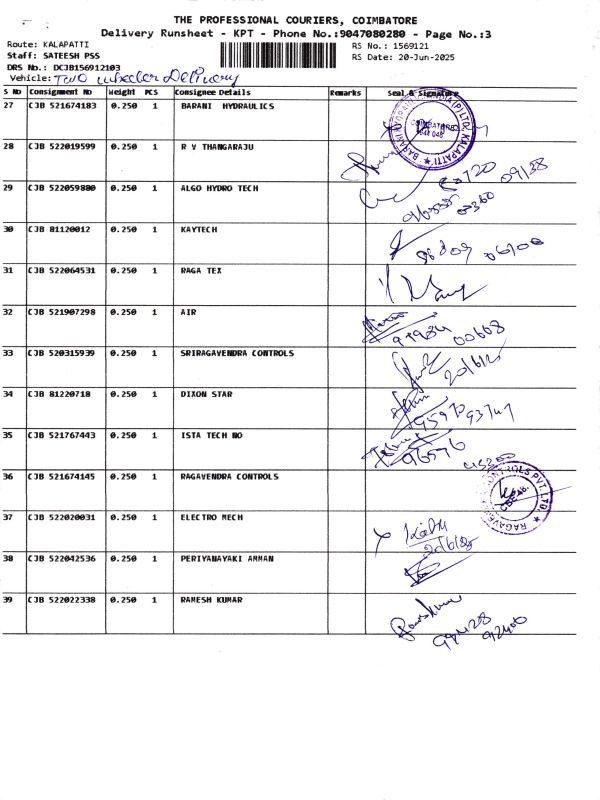 THE PROFESSIONAL COURIERS, COIMBATORE
Delivery Runsheet - KPT - Phone No.:9047080280 - Page No.:3
Route: KALAPATTI RS No.: 1569121
Staff: SATEESH PSS RS Date: 20-Jun-2025
DRS No.: DCJB156912103
Vehicle: Two wheeler Delivery
S No Consignment No Weight PCS Consignee Details Remarks Seal & Signature
27 CJB 521674183 0.250 1 BARANI HYDRAULICS
28 CJB 522019599 0.250 1 R V THANGARAJU
29 CJB 522059880 0.250 1 ALGO HYDRO TECH
30 CJB 81120012 0.250 1 KAYTECH
31 CJB 522064531 0.250 1 RAGA TEX
32 CJB 521907298 0.250 1 AIR
33 CJB 520315939 0.250 1 SRIRAGAVENDRA CONTROLS
20/6/25
34 CJB 81220718 0.250 1 DIXON STAR
35 CJB 521767443 0.250 1 ISTA TECH NO
96576
36 CJB 521674145 0.250 1 RAGAVENDRA CONTROLS
37 CJB 522020031 0.250 1 ELECTRO MECH
20/6/25
38 CJB 522042536 0.250 1 PERIYANAYAKI AMMAN
39 CJB 522022338 0.250 1 RAMESH KUMAR